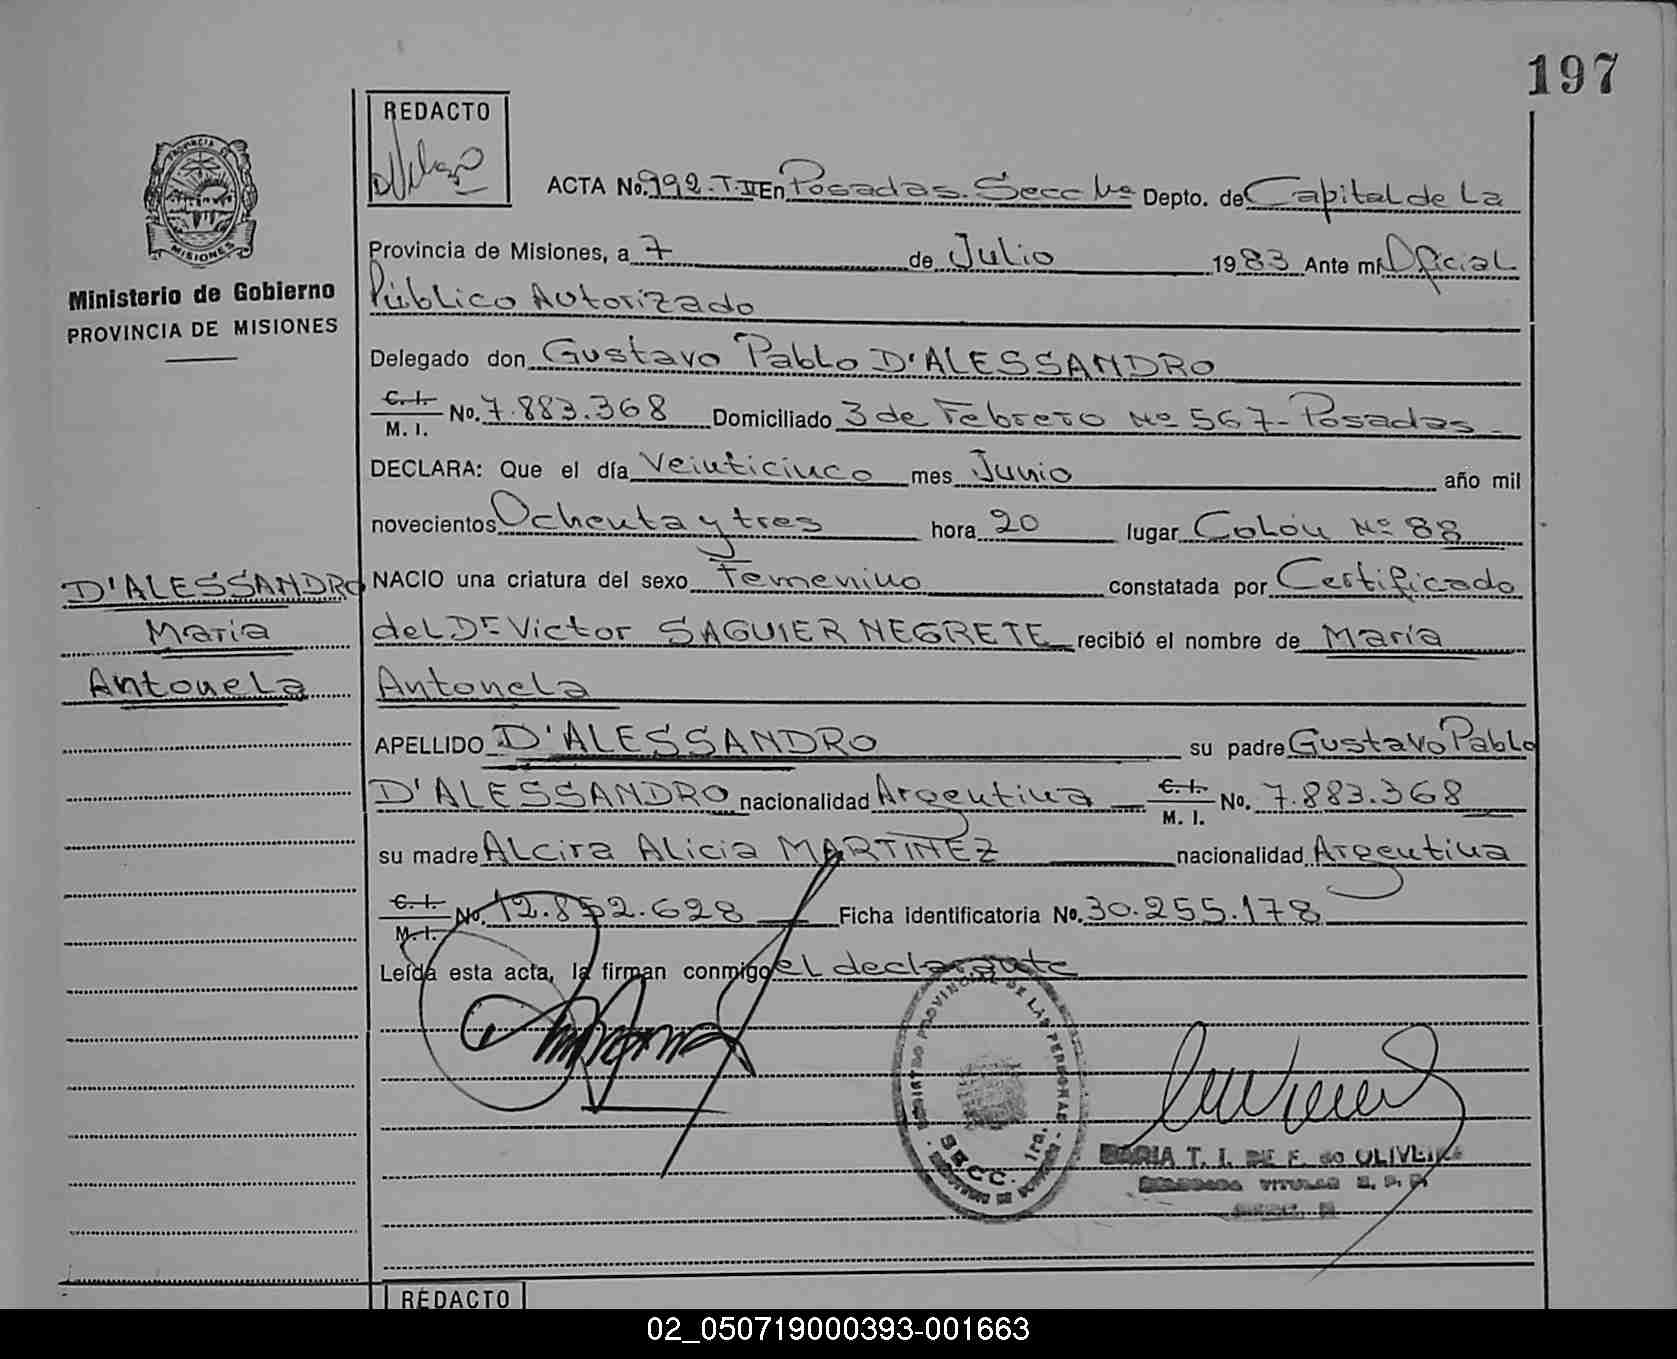 197
REDACTO
ACTA No. 992.T.II En Posadas. Secc 1ra Depto. de Capital de La
Provincia de Misiones, a 7 de Julio 1983 Ante mí Oficial
Público Autorizado
Delegado don Gustavo Pablo D'ALESSANDRO
C. I.
M. I. No. 7.883.368 Domiciliado 3 de Febrero Nº 567- Posadas-
DECLARA: Que el día Veinticinco mes Junio año mil
novecientos Ochenta y tres hora 20 lugar Colón Nº 88
NACIO una criatura del sexo Femenino constatada por Certificado
del Dr Victor SAGUIER NEGRETE recibió el nombre de María
Antonela
APELLIDO D'ALESSANDRO su padre Gustavo Pablo
D'ALESSANDRO nacionalidad Argentina C. I. M. I. No. 7.883.368
su madre Alcira Alicia MARTINEZ nacionalidad Argentina
C. I.
M. I. No. 12.852.628 Ficha identificatoria No. 30.255.178
Leída esta acta, la firman conmigo el declarante
PROVINCIA DE
MISIONES
Ministerio de Gobierno
PROVINCIA DE MISIONES
D'ALESSANDRO
María
Antonela
REGISTRO PROVINCIAL DE LAS PERSONAS
SECC. 1ra.
MARIA T. I. DE F. do OLIVEIRA
TITULAR
REDACTO
02_050719000393-001663